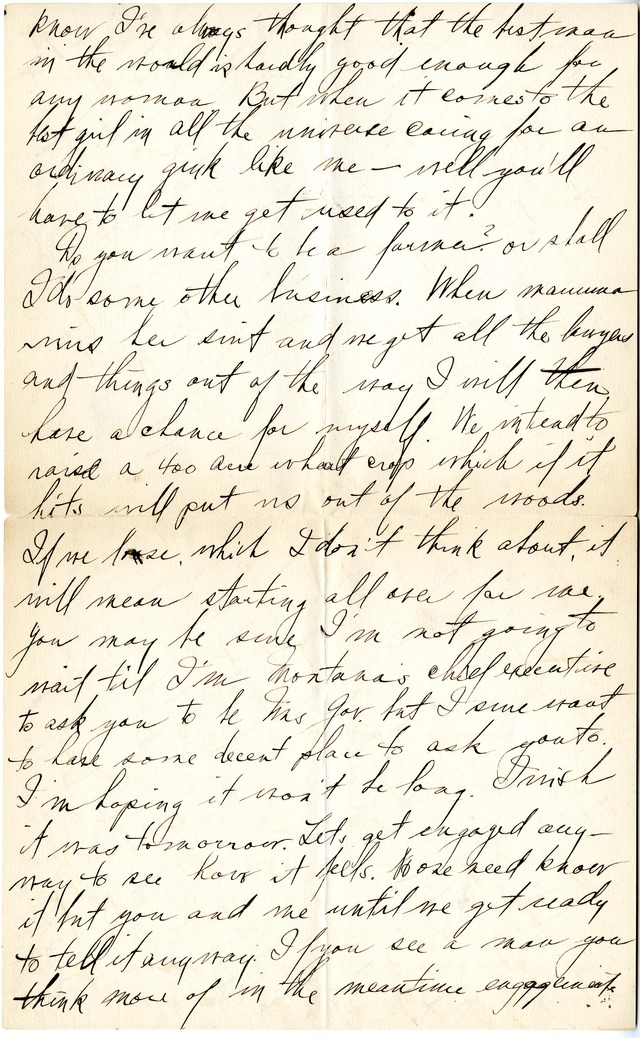 know I've always thought that the best man
in the world is hardly good enough for
any woman But when it comes to the
best girl in all the universe caring for an
ordinary gink like me — well you'll
have to let me get used to it.
Do you want to be a farmer? or shall
I do some other business. When mamma
wins her suit and we get all the lawyers
and things out of the way I will then
have a chance for myself. We intend to
raise a 400 acre wheat crop which if it
hits will put us out of the woods.
If we lose, which I don't think about, it
will mean starting all over for me.
You may be sure I'm not going to
wait til I'm Montana's chief executive
to ask you to be Mrs Gov. but I sure want
to have some decent place to ask you to.
I'm hoping it won't be long. I wish
it was tomorrow. Lets get engaged any-
way to see how it feels. No one need know
it but you and me until we get ready
to tell it anyway. If you see a man you
think more of in the meantime engagements